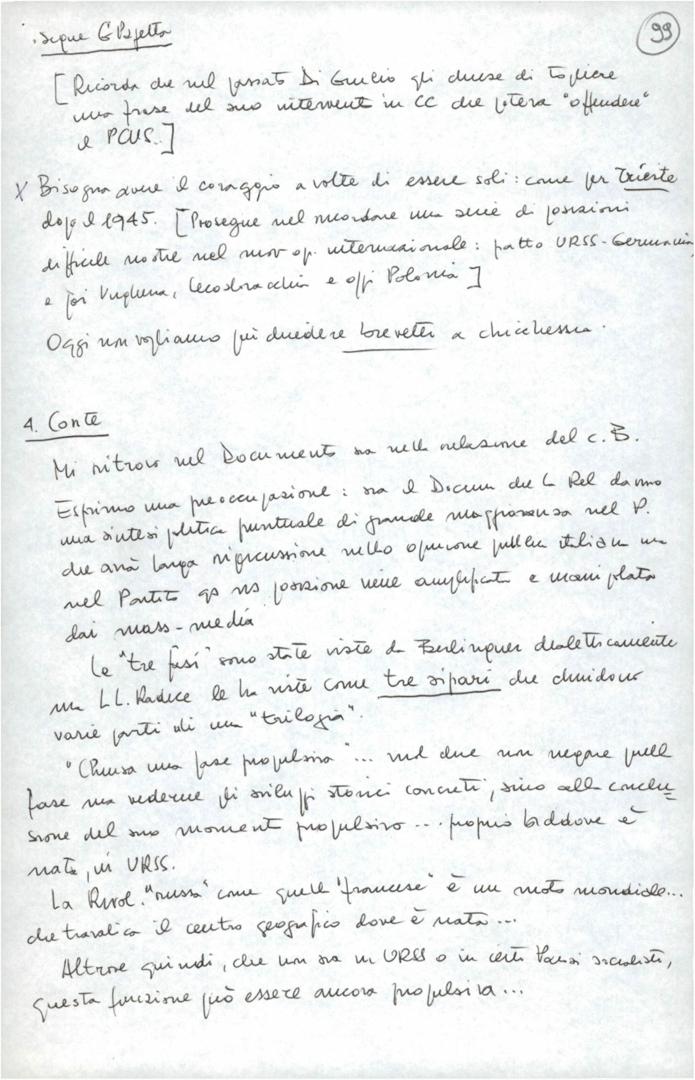 segue G Pajetta
99
[Ricorda che nel passato Di Giulio gli chiese di togliere
una frase del suo intervento in CC che poteva "offendere"
il PCUS.]
X Bisogna avere il coraggio a volte di essere soli: come per Trieste
dopo il 1945. [Prosegue nel ricordare una serie di posizioni
difficili nostre nel mov op. internazionale: patto URSS-Germania,
e poi Ungheria, Cecoslovacchia e oggi Polonia]
Oggi non vogliamo più chiedere brevetti a chicchessia.
4. Conte
Mi ritrovo nel Documento sia nella relazione del c. B.
Esprimo una preoccupazione: sia il Docum che la Rel danno
una sintesi politica puntuale di grande maggioranza nel P.
che avrà larga ripercussione nella opinione pubblica italiana ma
nel Partito qs ns posizione viene amplificata e manipolata
dai mass-media
Le "tre fasi" sono state viste da Berlinguer dialetticamente
ma LL. Radice le ha viste come tre sipari che chiudono
varie parti di una "trilogia".
"Chiusa una fase propulsiva"... vuol dire non negare quella
fase ma vederne gli sviluppi storici concreti, sino alla conclu=
sione del suo momento propulsivo... proprio laddove è
nata, in URSS.
La Rivol. "russa" come quella "francese" è un moto mondiale...
che travalica il centro geografico dove è nata...
Altrove quindi, che non sia in URSS o in certi Paesi socialisti,
questa funzione può essere ancora propulsiva...